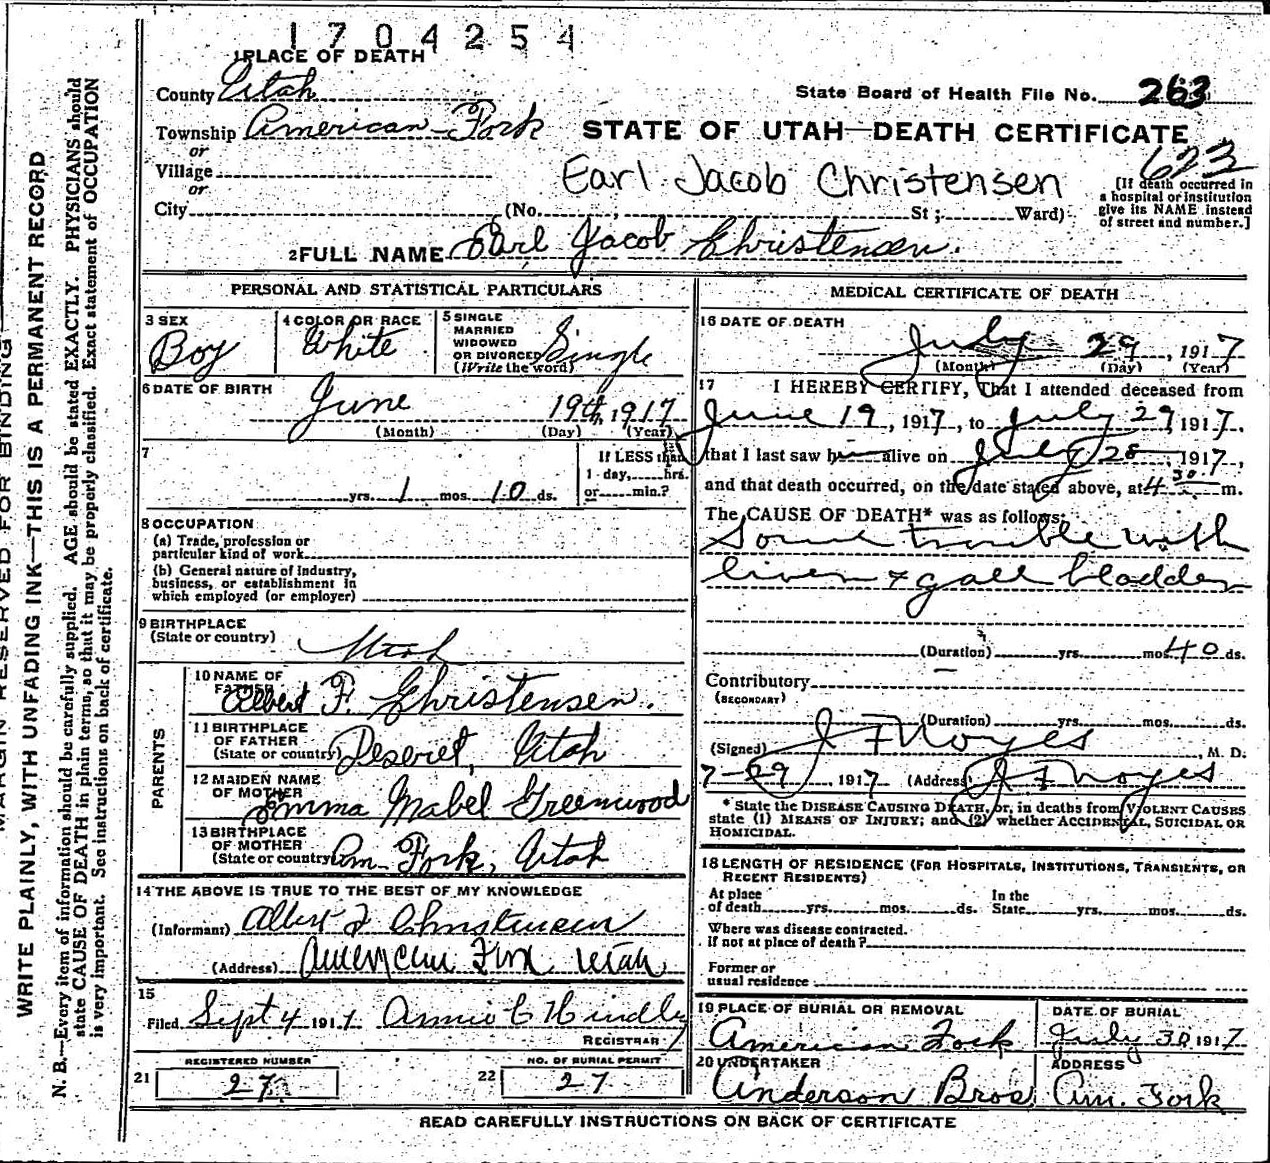 1704254
1 PLACE OF DEATH
County Utah
State Board of Health File No. 263
Township American Fork
or
STATE OF UTAH—DEATH CERTIFICATE
623
Village
or
Earl Jacob Christensen
City (No. , St ; Ward)
[If death occurred in
a hospital or institution
give its NAME instead
of street and number.]
2 FULL NAME Earl Jacob Christensen.
PERSONAL AND STATISTICAL PARTICULARS
3 SEX
Boy
4 COLOR OR RACE
White
5 SINGLE
MARRIED
WIDOWED
OR DIVORCED
(Write the word)
Single
6 DATE OF BIRTH
June 19th, 1917
(Month) (Day) (Year)
7
yrs. 1 mos. 10 ds.
If LESS than
1 day, hrs.
or min.?
8 OCCUPATION
(a) Trade, profession or
particular kind of work
(b) General nature of industry,
business, or establishment in
which employed (or employer)
9 BIRTHPLACE
(State or country) Utah
PARENTS
10 NAME OF
FATHER Albert F. Christensen.
11 BIRTHPLACE
OF FATHER
(State or country) Deseret, Utah
12 MAIDEN NAME
OF MOTHER Emma Mabel Greenwood
13 BIRTHPLACE
OF MOTHER
(State or country) Am. Fork, Utah
14 THE ABOVE IS TRUE TO THE BEST OF MY KNOWLEDGE
(Informant) Albert F Christensen
(Address) American Fork Utah
15
Filed Sept 4 1917 Annie C Hindley
REGISTRAR
REGISTERED NUMBER
21 27
NO. OF BURIAL PERMIT
22 27
MEDICAL CERTIFICATE OF DEATH
16 DATE OF DEATH
July 29, 1917
(Month) (Day) (Year)
17 I HEREBY CERTIFY, That I attended deceased from
June 19, 1917, to July 29, 1917,
that I last saw h alive on July 28, 1917,
and that death occurred, on the date stated above, at 4 30 m.
The CAUSE OF DEATH* was as follows:
Some trouble with
liver & gall bladder
(Duration) yrs. mos. 40 ds.
Contributory
(SECONDARY)
(Duration) yrs. mos. ds.
(Signed) J F Noyes, M. D.
7-29, 1917 (Address) J F Noyes
* State the DISEASE CAUSING DEATH, or, in deaths from VIOLENT CAUSES
state (1) MEANS OF INJURY; and (2) whether ACCIDENTAL, SUICIDAL OR
HOMICIDAL.
18 LENGTH OF RESIDENCE (FOR HOSPITALS, INSTITUTIONS, TRANSIENTS, OR
RECENT RESIDENTS)
At place
of death yrs. mos. ds.
In the
State yrs. mos. ds.
Where was disease contracted.
if not at place of death?
Former or
usual residence
19 PLACE OF BURIAL OR REMOVAL
American Fork
DATE OF BURIAL
July 30 1917
20 UNDERTAKER
Anderson Bros
ADDRESS
Am. Fork
READ CAREFULLY INSTRUCTIONS ON BACK OF CERTIFICATE
MARGIN RESERVED FOR BINDING
WRITE PLAINLY, WITH UNFADING INK—THIS IS A PERMANENT RECORD
N. B.—Every item of information should be carefully supplied. AGE should be stated EXACTLY. PHYSICIANS should
state CAUSE OF DEATH in plain terms, so that it may be properly classified. Exact statement of OCCUPATION
is very important. See instructions on back of certificate.